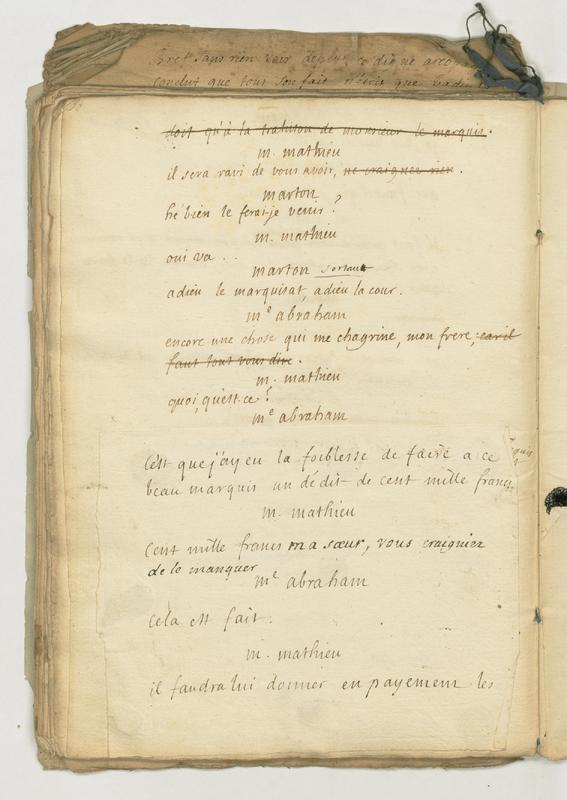 Bret sans rien voir de plus
conclut que tous son fait
doit qu'à la trahison de monsieur le marquis.
m. mathieu
il sera ravi de vous avoir, ne craignez rien.
marton
hé bien le ferai-je venir?
m. mathieu
oui va..
marton sortant
adieu le marquisat, adieu la cour.
me abraham
encore une chose qui me chagrine, mon frere, car il
faut tout vous dire.
m. mathieu
quoi, qu'est-ce?
me abraham
C'est que j'ay eu la foiblesse de faire a ce
beau marquis un dédit de cent mille francs.
m. mathieu
Cent mille francs ma sœur, vous craigniez
de le manquer
me abraham
Cela est fait.
m. mathieu
il faudra lui donner en payement les